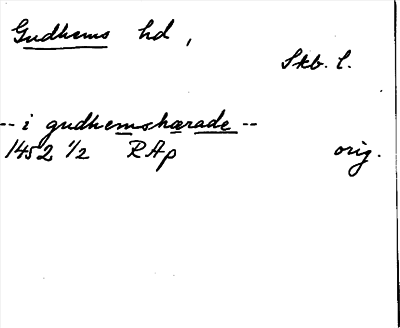 Gudhems hd,
Skb. l.
-- i gudhemshærade --
1452 1/2 RAp orig.